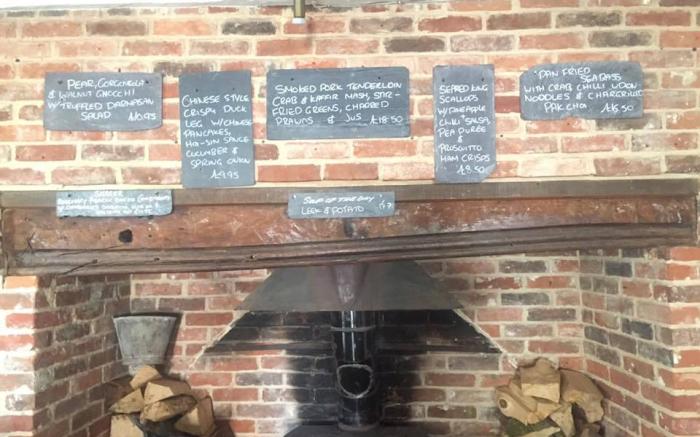 PEAR, GORGONZOLA
& WALNUT GNOCCHI
W/TRUFFLED PARMESAN
SALAD £10.95
CHINESE STYLE
CRISPY DUCK
LEG W/CHINESE
PANCAKES,
HOI-SIN SAUCE
CUCUMBER &
SPRING ONION
£9.95
SMOKED PORK TENDERLOIN
CRAB & KAFFIR MASH, STIR-
FRIED GREENS, CHARRED
PRAWNS & JUS £18.50
SEARED KING
SCALLOPS
W/PINEAPPLE
CHILLI SALSA,
PEA PURÉE &
PROSCIUTTO
HAM CRISPS
£8.50
PAN FRIED
SEABASS
WITH CRAB CHILLI UDON
NOODLES & CHARGRILLED
PAK CHOI £16.50
SOUP OF THE DAY
LEEK & POTATO £7